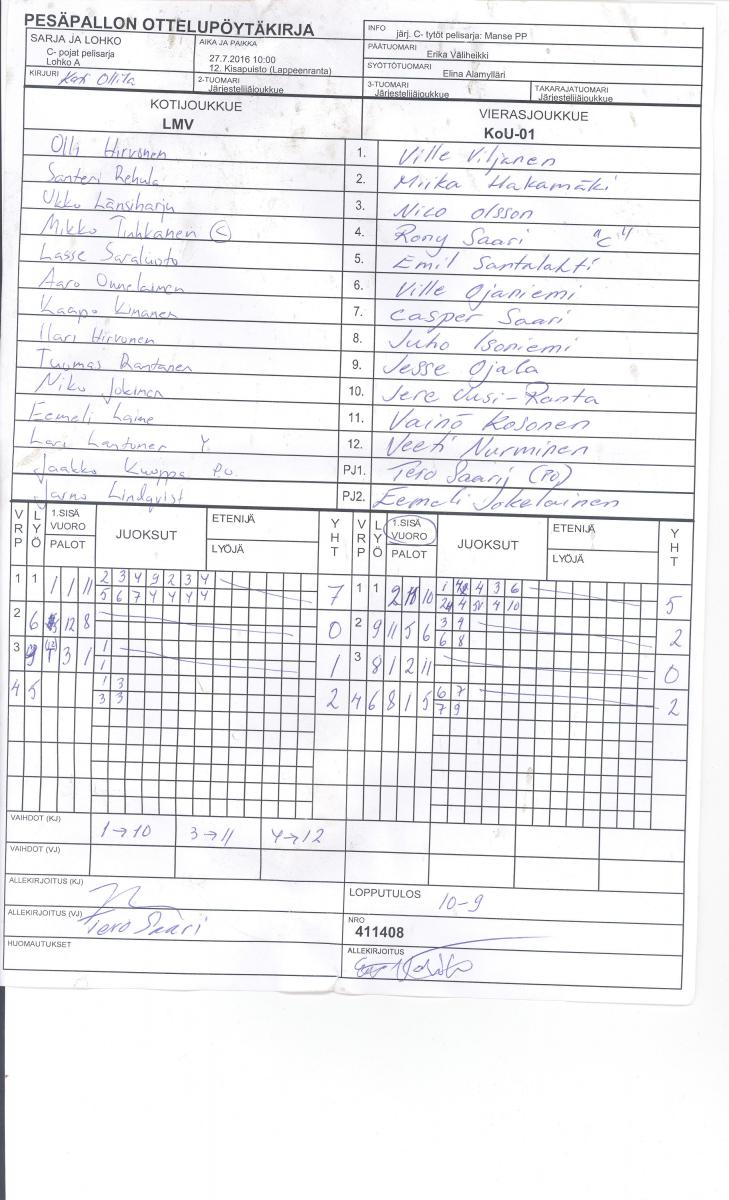 PESÄPALLON OTTELUPÖYTÄKIRJA
INFO järj. C- tytöt pelisarja: Manse PP
SARJA JA LOHKO
C- pojat pelisarja
Lohko A
AIKA JA PAIKKA
27.7.2016 10:00
12. Kisapuisto (Lappeenranta)
PÄÄTUOMARI
Erika Väliheikki
SYÖTTÖTUOMARI
Elina Alamylläri
KIRJURI Kati Ollila
2-TUOMARI
Järjestelijäjoukkue
3-TUOMARI
Järjestelijäjoukkue
TAKARAJATUOMARI
Järjestelijäjoukkue
KOTIJOUKKUE
LMV
VIERASJOUKKUE
KoU-01
Olli Hirvonen 1. Ville Viljanen
Santeri Rehula 2. Miika Hakamäki
Ukko Länsiharju 3. Nico Olsson
Mikko Tuhkanen (C) 4. Rony Saari "C"
Lasse Saraluoto 5. Emil Santalahti
Aaro Onnelainen 6. Ville Ojaniemi
Kaapo Kinanen 7. Casper Saari
Ilari Hirvonen 8. Juho Isoniemi
Tuomas Rantanen 9. Jesse Ojala
Niko Jokinen 10. Jere Uusi-Ranta
Eemeli Laine 11. Väinö Kosonen
Lari Lantuner Y. 12. Veeti Nurminen
Jaakko Kuoppa P.O PJ1. Tero Saari (PO)
Jarno Lindqvist PJ2. Eemeli Jokelainen
VRP LYÖ 1.SISÄ VUORO PALOT JUOKSUT ETENIJÄ LYÖJÄ YHT VRP LYÖ 1.SISÄ VUORO PALOT JUOKSUT ETENIJÄ LYÖJÄ YHT
1 1 1 1 11 2 3 4 9 2 3 4 7 1 1 10 4 3 6 5
5 6 7 4 4 4 4 4 10
2 6 12 8 0 2 9 11 5 6 3 9 2
6 8
3 9 3 1 1 1 3 8 1 2 11 0
1
4 5 1 3 2 4 6 8 1 5 6 7 2
3 3 7 9
VAIHDOT (KJ) 1→10 3→11 4→12
VAIHDOT (VJ)
ALLEKIRJOITUS (KJ)
LOPPUTULOS 10-9
ALLEKIRJOITUS (VJ) Tero Saari
NRO
411408
HUOMAUTUKSET
ALLEKIRJOITUS